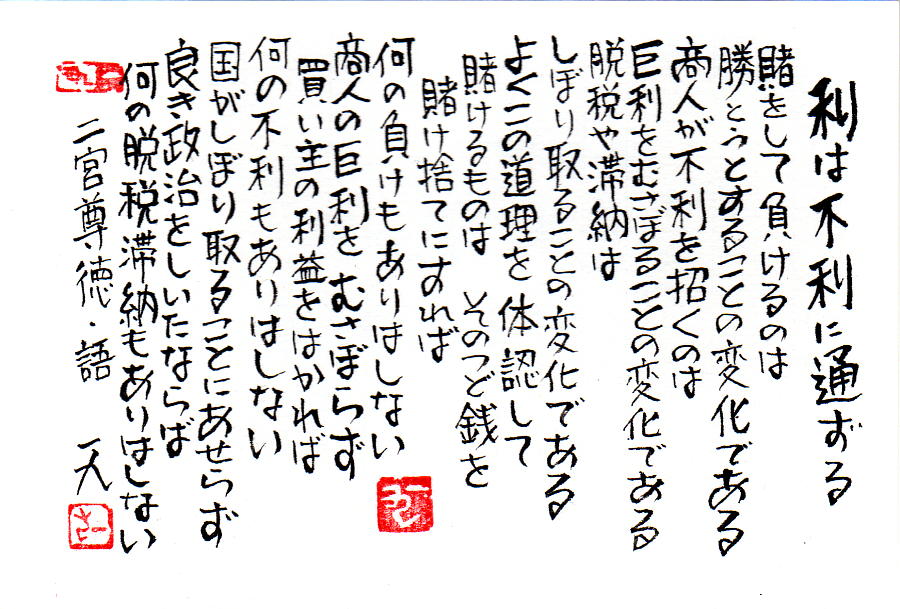 利は不利に通ずる
賭をして負けるのは
勝とうとすることの変化である
商人が不利を招くのは
巨利をむさぼることの変化である
脱税や滞納は
しぼり取ることの変化である
よくこの道理を体認して
賭けるものは そのつど銭を
賭け捨てにすれば
何の負けもありはしない
商人の巨利を むさぼらず
買い主の利益をはかれば
何の不利もありはしない
国がしぼり取ることにあせらず
良き政治をしいたならば
何の脱税滞納もありはしない
二宮尊徳・語